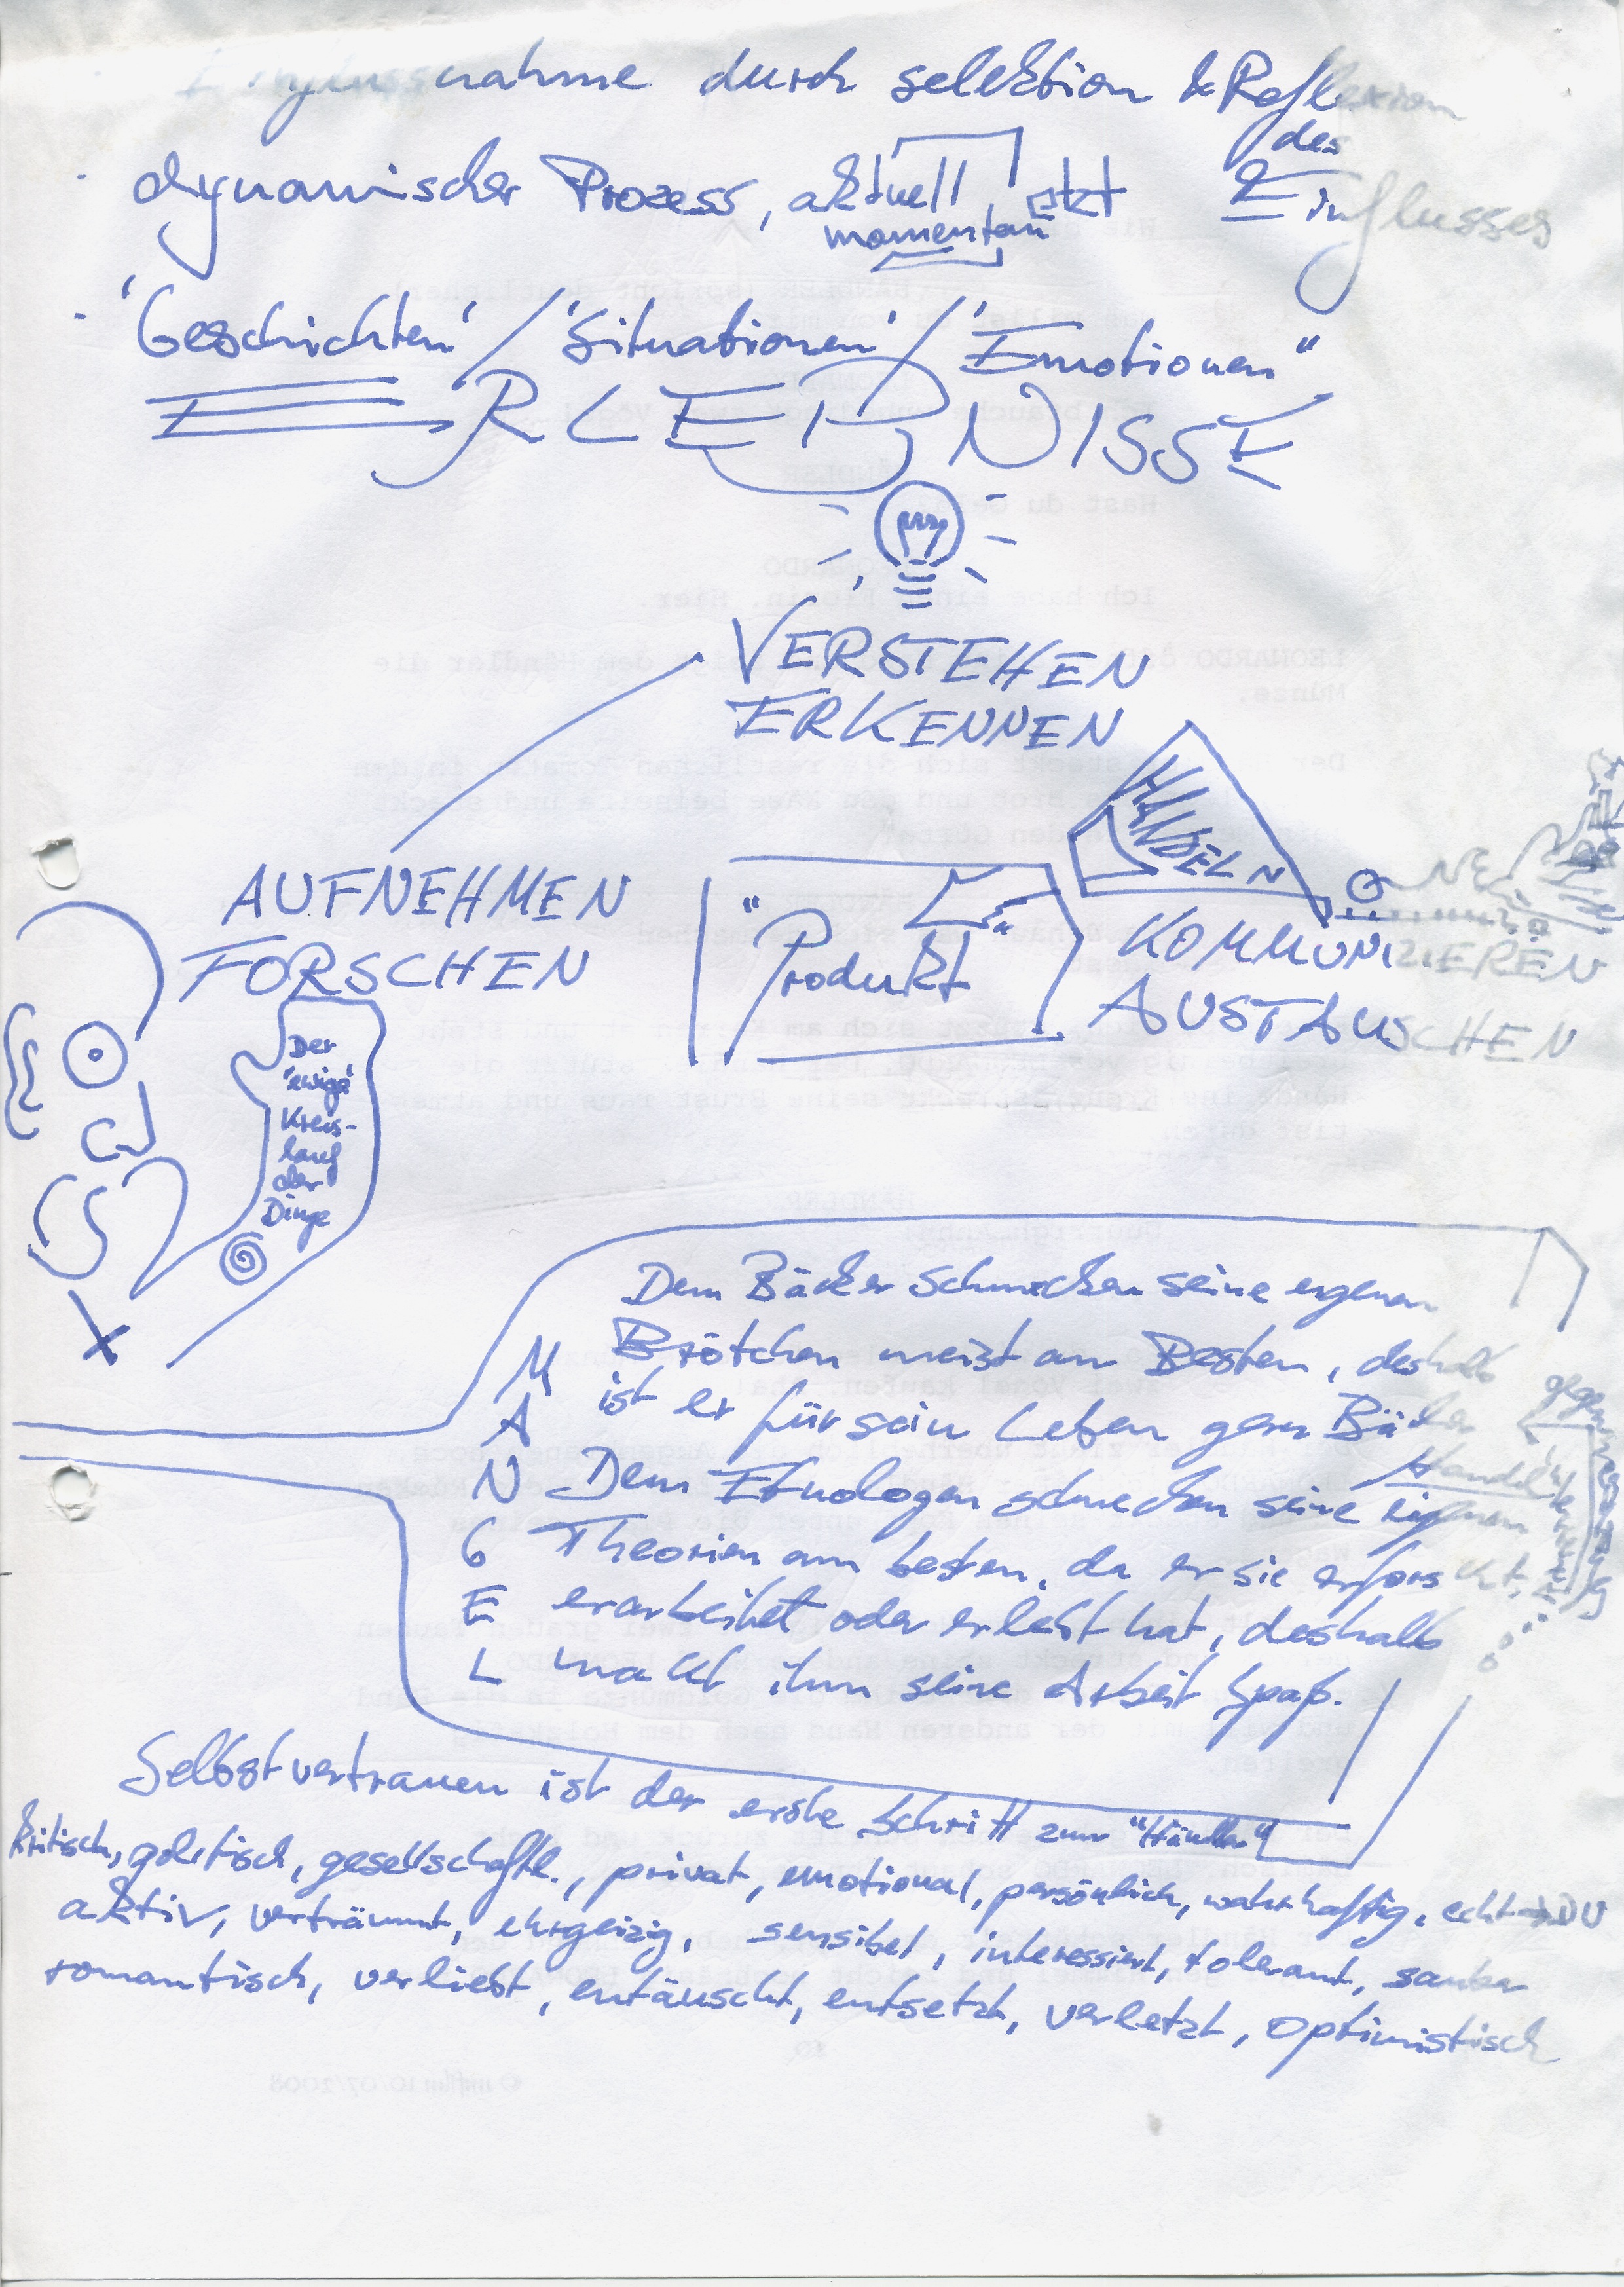 Einflussnahme durch selektion & Reflexion
des
Einflusses
dynamischer Prozess, aktuell, jetzt
momentan
'Geschichten' / 'Situationen' / 'Emotionen"
ERLEBNISSE
VERSTEHEN
ERKENNEN
HANDELN
AUFNEHMEN
FORSCHEN
"Produkt"
KOMMUNIZIEREN
AUSTAUSCHEN
Der
'ewige'
Kreis-
lauf
der
Dinge
MANGEL
Dem Bäcker schmecken seine eigenen
Brötchen meist am Besten, deshalb
ist er für sein Leben gern Bäcker
Dem Etnologen schmecken seine eigenen
Theorien am besten, da er sie erforscht,
erarbeitet oder erlebt hat, deshalb
macht ihm seine Arbeit Spaß.
Selbstvertrauen ist der erste Schritt zum "Händler"
kritisch, politisch, gesellschaftl., privat, emotional, persönlich, wahrhaftig, echt → DU
aktiv, verträumt, ehrgeizig, sensibel, interessiert, tolerant, sauber
romantisch, verliebt, entäuscht, entsetzt, verletzt, optimistisch